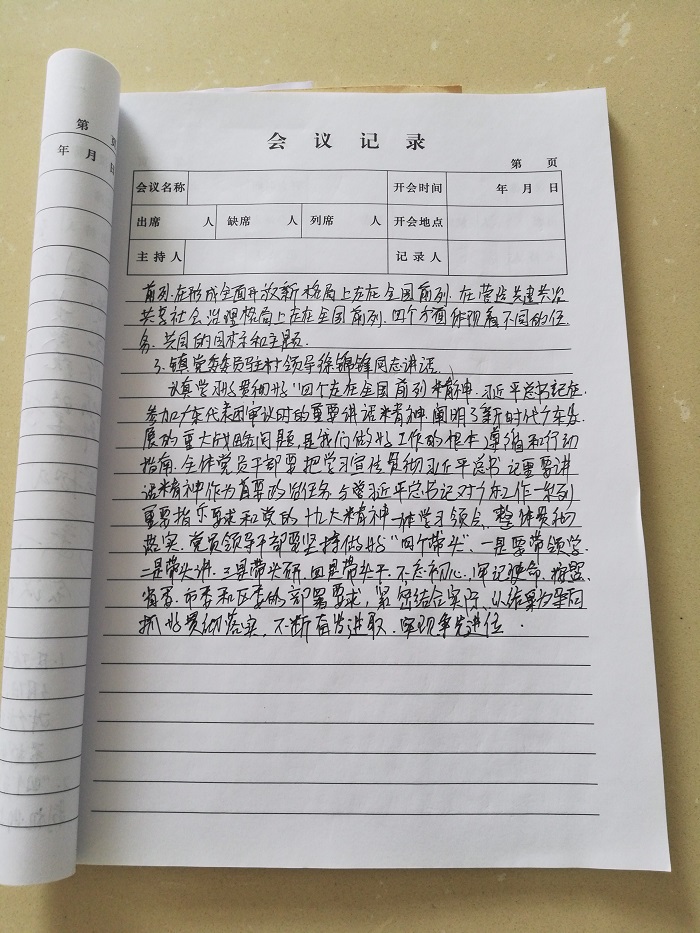 第 页
年 月 日
会议记录
第 页
会议名称 开会时间 年 月 日
出席 人 缺席 人 列席 人 开会地点
主持人 记录人
前列.在形成全面开放新格局上走在全国前列.在营造共建共治
共享社会治理格局上走在全国前列.四个方面体现着不同的任
务.共同的目标和主题.
3.镇党委委员驻村领导徐锦锋同志讲话.
认真学习好贯彻好"四个走在全国前列"精神.习近平总书记在
参加广东代表团审议时的重要讲话精神,阐明了新时代广东发
展的重大战略问题,是我们做好工作的根本遵循和行动
指南.全体党员干部要把学习宣传贯彻习近平总书记重要讲
话精神作为首要政治任务.与学习近平总书记对广东工作一系列
重要指示要求和党的十九大精神一体学习领会、整体贯彻
落实.党员领导干部要坚持做好"四个带头".一是要带领学.
二是带头讲.三是带头研.四是带头干.不忘初心,牢记使命.按照
省委.市委和区委的部署要求,紧密结合实际.以结果为导向
抓好贯彻落实,不断奋发进取.实现争先进位.